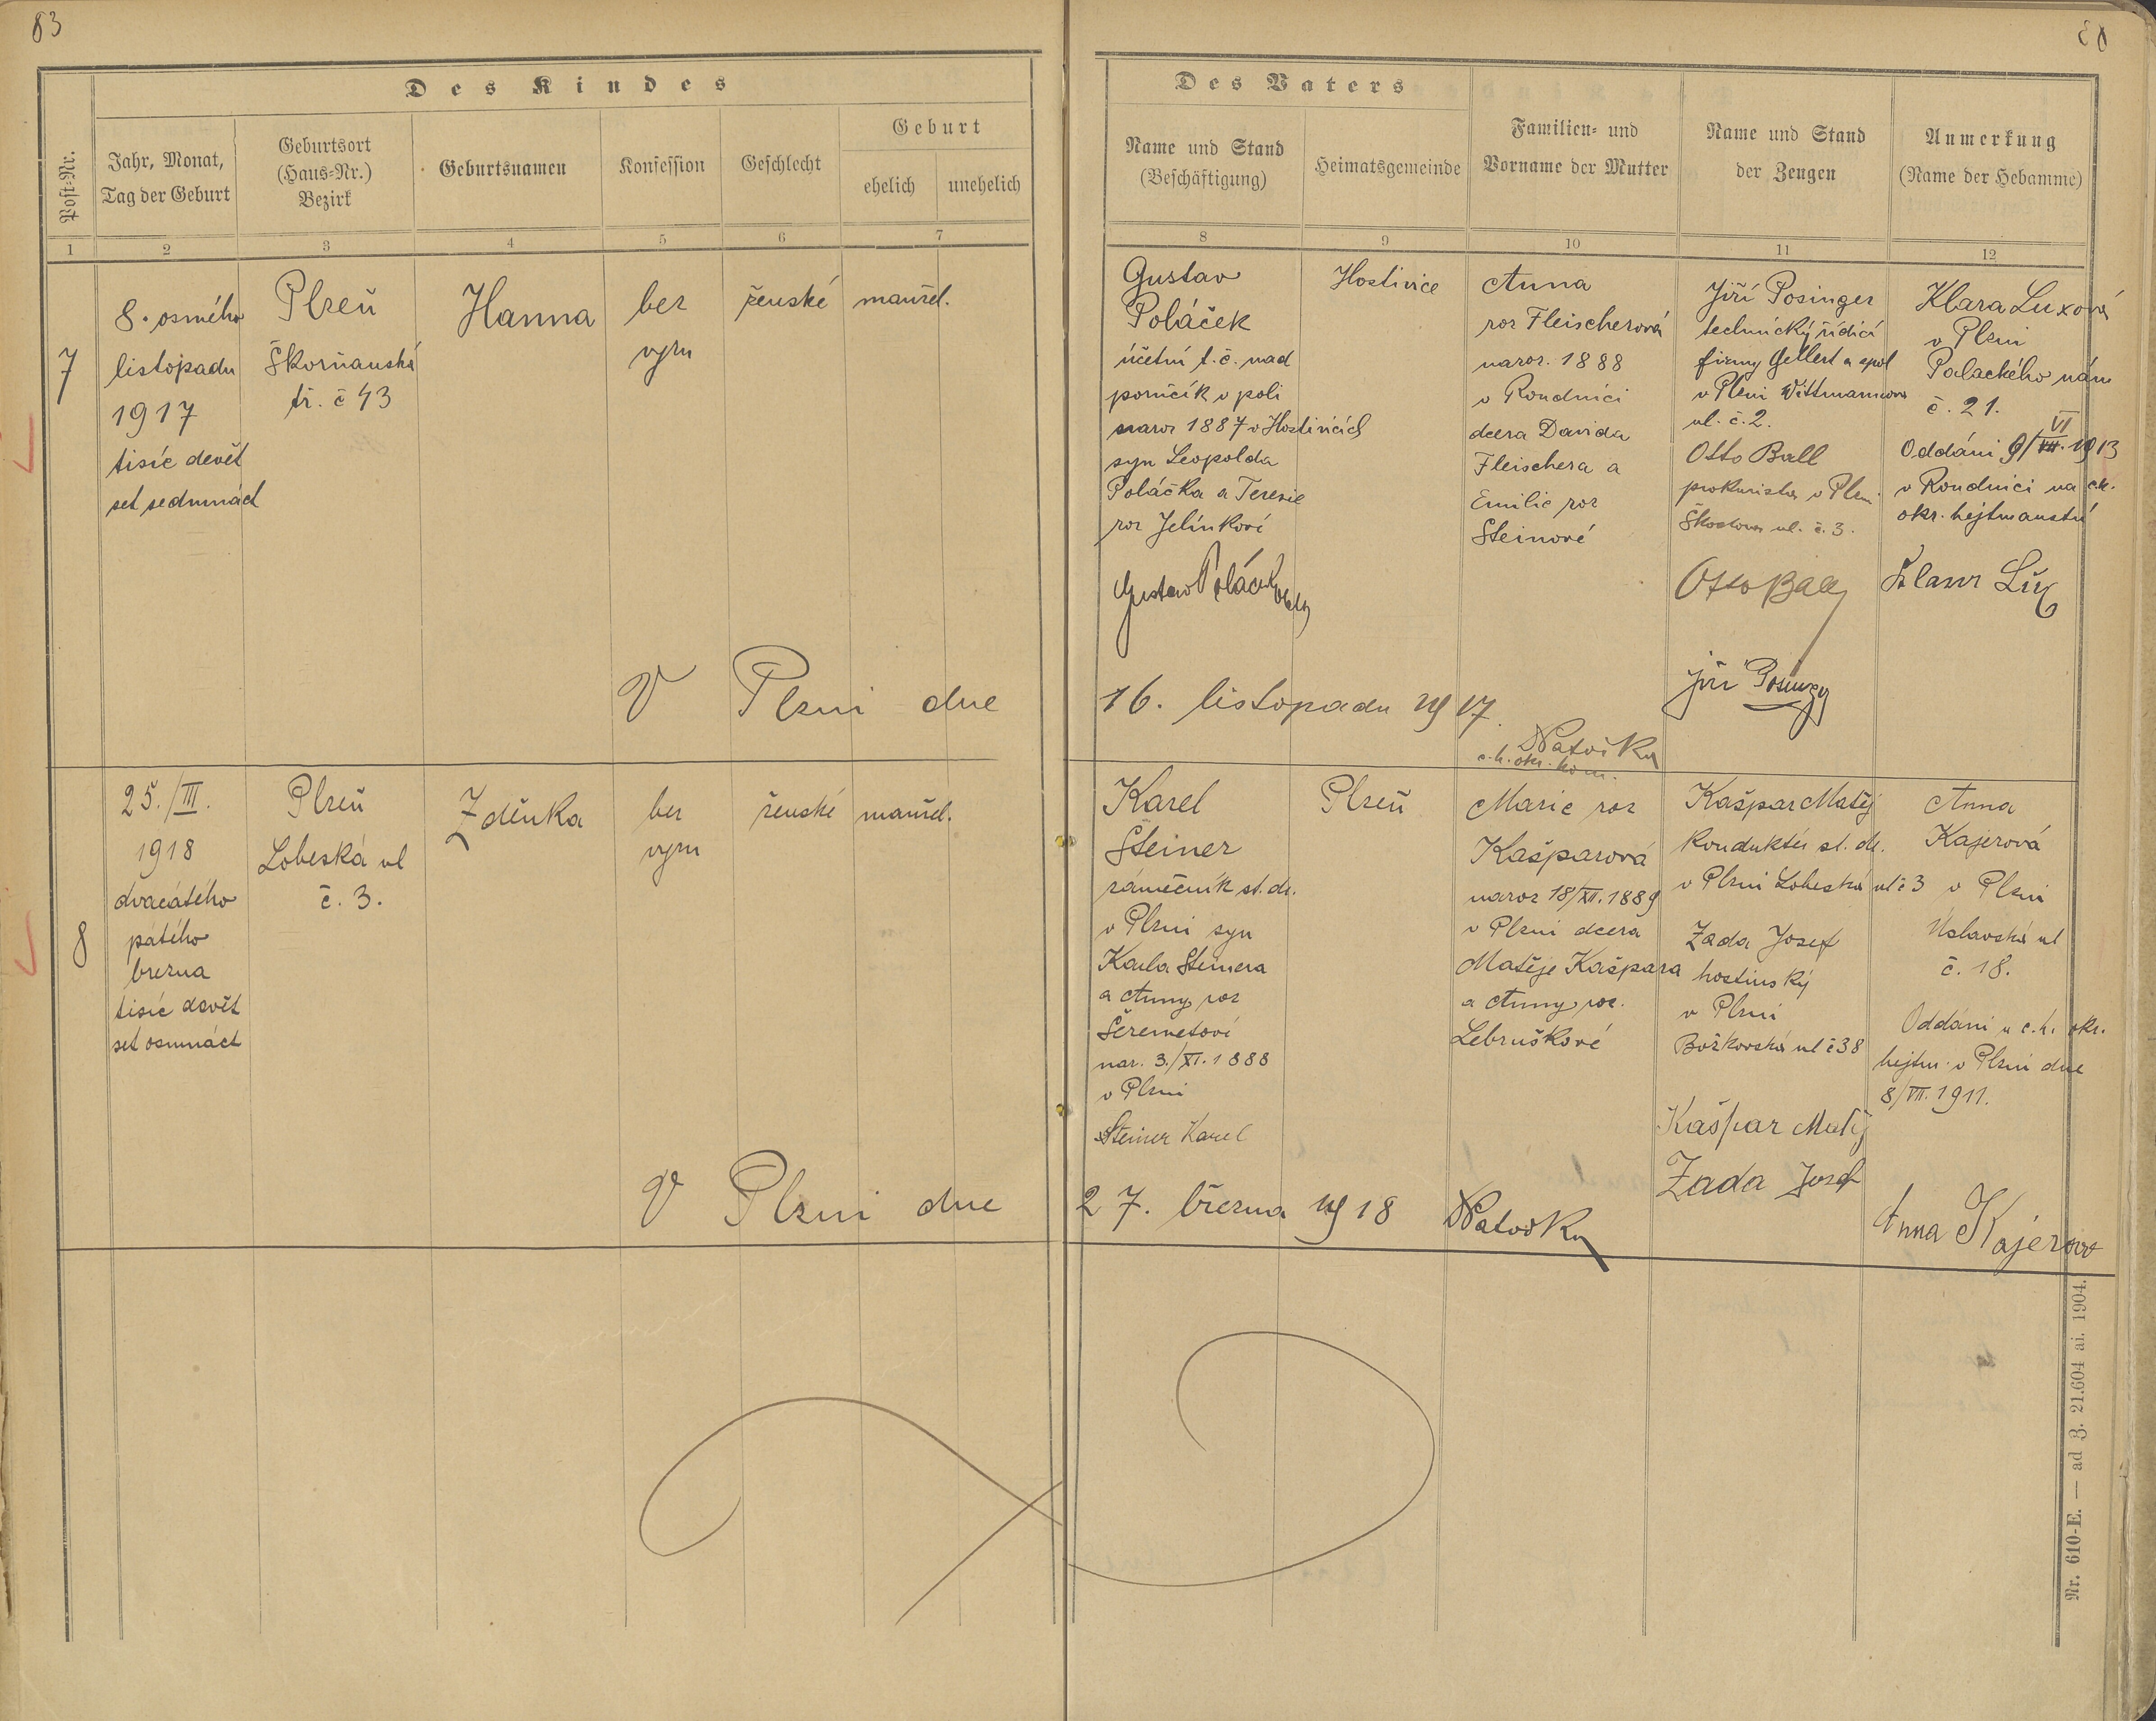 83
Des Kindes
Post-Nr.
Jahr, Monat,
Tag der Geburt
Geburtsort
(Haus-Nr.)
Bezirk
Geburtsnamen
Konfession
Geschlecht
Geburt
ehelich
unehelich
1
2
3
4
5
6
7
7
8. osmého
listopadu
1917
tisíc devět
set sedmnáct
Plzeň
Škorňanská
tř. č 43
Hanna
bez
vyzn
ženské
manžel.
V Plzni dne
8
25./III.
1918
dvacátého
pátého
března
tisíc devět
set osmnáct
Plzeň
Lobeská ul
č. 3.
Zděnka
bez
vyzn
ženské
manžel.
V Plzni dne
Des Vaters
Name und Stand
(Beschäftigung)
Heimatsgemeinde
Familien- und
Vorname der Mutter
Name und Stand
der Zeugen
Anmerkung
(Name der Hebamme)
8
9
10
11
12
Gustav
Poláček
účetní t. č. nad
poručík v poli
naroz 1887 v Hostivicích
syn Leopolda
Poláčka a Terezie
roz Jelínkové
Gustav Poláček
Hostivice
Anna
roz Fleischerová
naroz. 1888
v Roudnici
dcera Davida
Fleischera a
Emilie roz
Steinové
Jiří Posinger
technický řídící
firmy Gellert a spol
v Plzni Wittmannova
ul. č. 2.
Otto Ball
prokurista v Plzni.
Škodova ul. č. 3.
Otto Ball
Jiří Posinger
Klara Luxová
v Plzni
Palackého nám
č. 21.
VI
Oddáni 9/VII. 1913
v Roudnici na c.k.
okr. hejtmanství
Klara Lux
16. listopadu 1917.
Watočka
c. k. okr. kom.
Karel
Šteiner
zámečník st. dr.
v Plzni syn
Karla Steinera
a Anny roz
Šeremetové
nar. 3./XI. 1888
v Plzni
Steiner Karel
Plzeň
Marie roz
Kašparová
naroz 18/XII. 1889
v Plzni dcera
Matěje Kašpara
a Anny roz.
Lebruškové
Kašpar Matěj
konduktér st. dr.
v Plzni Lobeská ul č 3
Zada Josef
hostinský
v Plzni
Božkovská ul č 38
Kašpar Matěj
Zada Josef
Anna
Kajerová
v Plzni
Úslavská ul
č. 18.
Oddáni u c. k. okr.
hejtm. v Plzni dne
8/VII. 1911.
Anna Kajerova
27. března 1918
Watočka
Nr. 610-E. — ad Z. 21.604 ai. 1904.